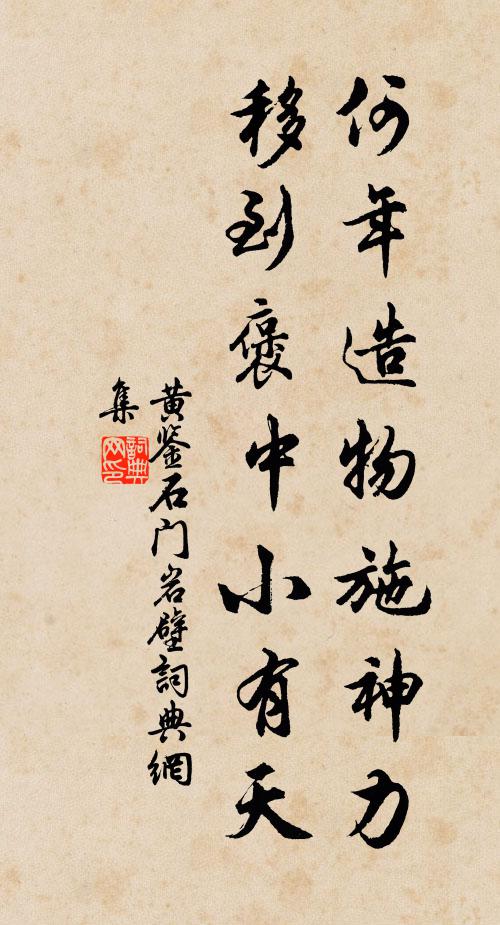 何年造物施神力
移到褒中小有天
黄鉴石门岩壁詞典網
集
詞典
网印